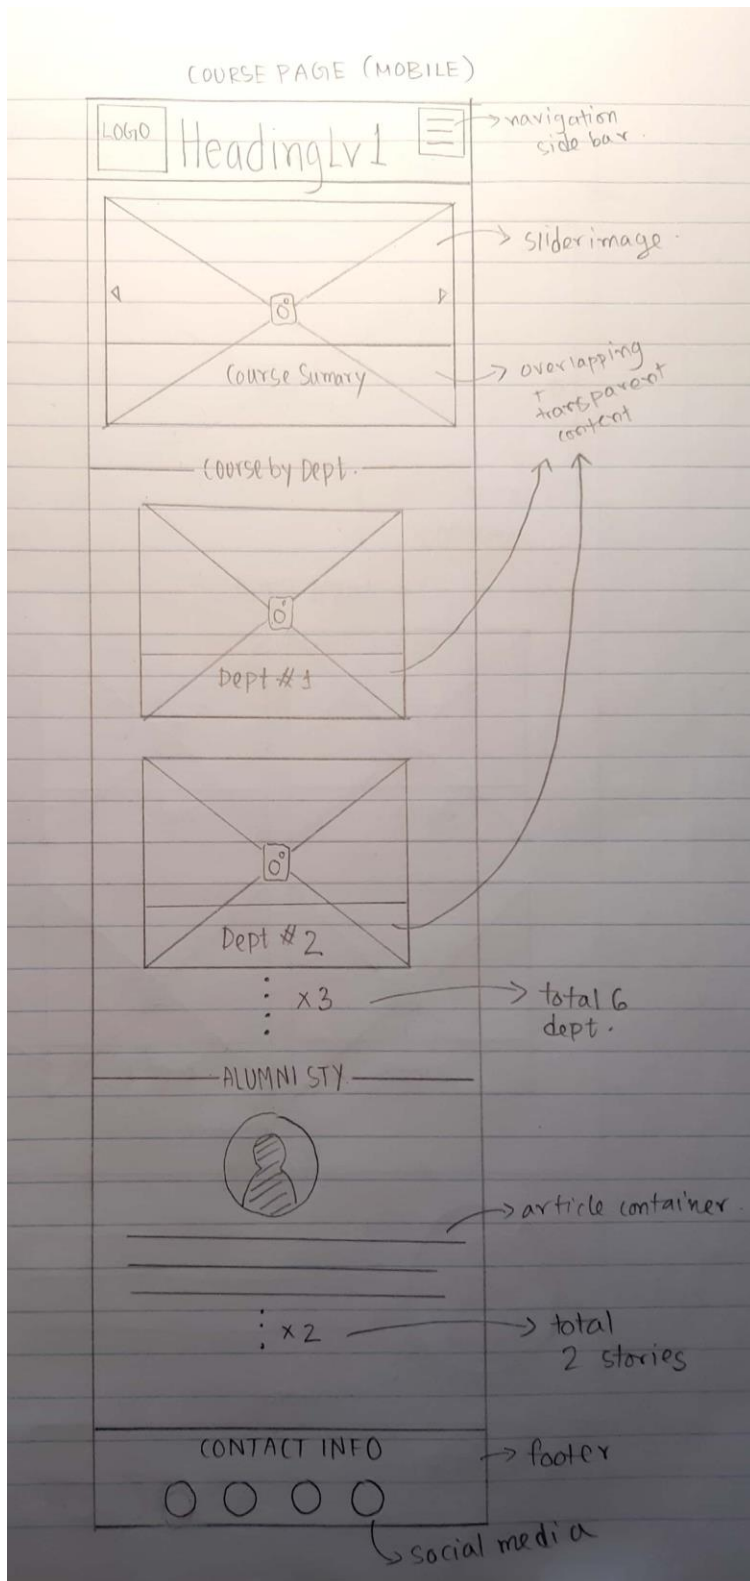 COURSE PAGE (MOBILE)
LOGO
HeadingLv1
navigation
side bar.
slider image.
Course Sumary
overlapping
+
transparent
content
Course by Dept.
Dept #1
Dept #2
x3
total 6
dept.
ALUMNI STY
article container.
x2
total
2 stories
CONTACT INFO
footer
social media